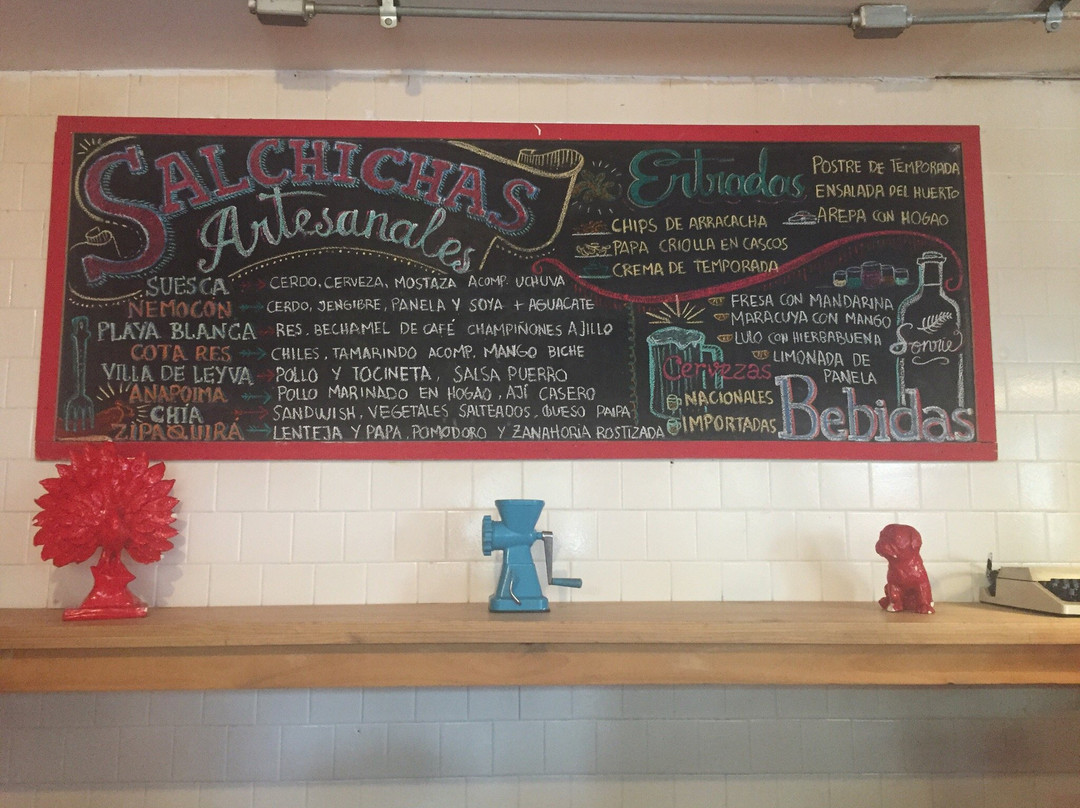 SALCHICHAS
Artesanales
SUESCA CERDO, CERVEZA, MOSTAZA ACOMP. UCHUVA
NEMOCÓN CERDO, JENGIBRE, PANELA Y SOYA + AGUACATE
PLAYA BLANCA RES, BECHAMEL DE CAFÉ CHAMPIÑONES AJILLO
COTA RES CHILES, TAMARINDO ACOMP. MANGO BICHE
VILLA DE LEYVA POLLO Y TOCINETA, SALSA PUERRO
ANAPOIMA POLLO MARINADO EN HOGAO, AJÍ CASERO
CHÍA SANDWISH, VEGETALES SALTEADOS, QUESO PAIPA
ZIPAQUIRÁ LENTEJA Y PAPA, POMODORO Y ZANAHORIA ROSTIZADA
Entradas
CHIPS DE ARRACACHA
PAPA CRIOLLA EN CASCOS
CREMA DE TEMPORADA
POSTRE DE TEMPORADA
ENSALADA DEL HUERTO
AREPA CON HOGAO
Cervezas
NACIONALES
IMPORTADAS
FRESA CON MANDARINA
MARACUYA CON MANGO
LULO CON HIERBABUENA
LIMONADA DE
PANELA
Bebidas